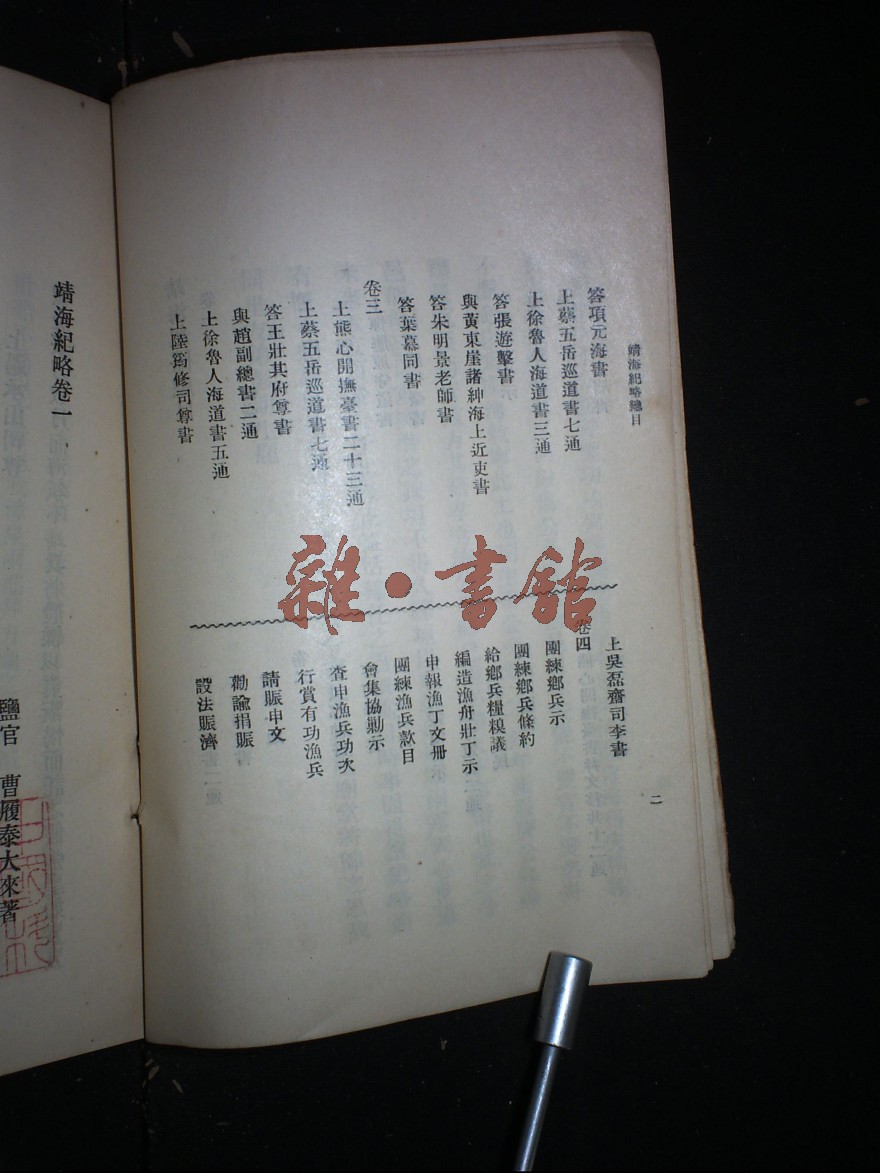 靖海紀略總目
答項元海書
上蔡五岳巡道書七通
上徐魯人海道書三通
答張遊擊書
與黃東崖諸紳海上近吏書
答朱明景老師書
答葉慕同書
卷三
上熊心開撫臺書二十三通
上蔡五岳巡道書七通
答王壯其府尊書
與趙副總書二通
上徐魯人海道書五通
上陸筠修司尊書
上吳磊齋司李書
卷四
團練鄉兵示
團練鄉兵條約
給鄉兵糧糗議
編造漁舟壯丁示
申報漁丁文冊
團練漁兵款目
會集協勦示
查申漁兵功次
行賞有功漁兵
請賑申文
勸諭捐賑
設法賑濟
二
雜·書館
靖海紀略卷一
鹽官 曹履泰大來著